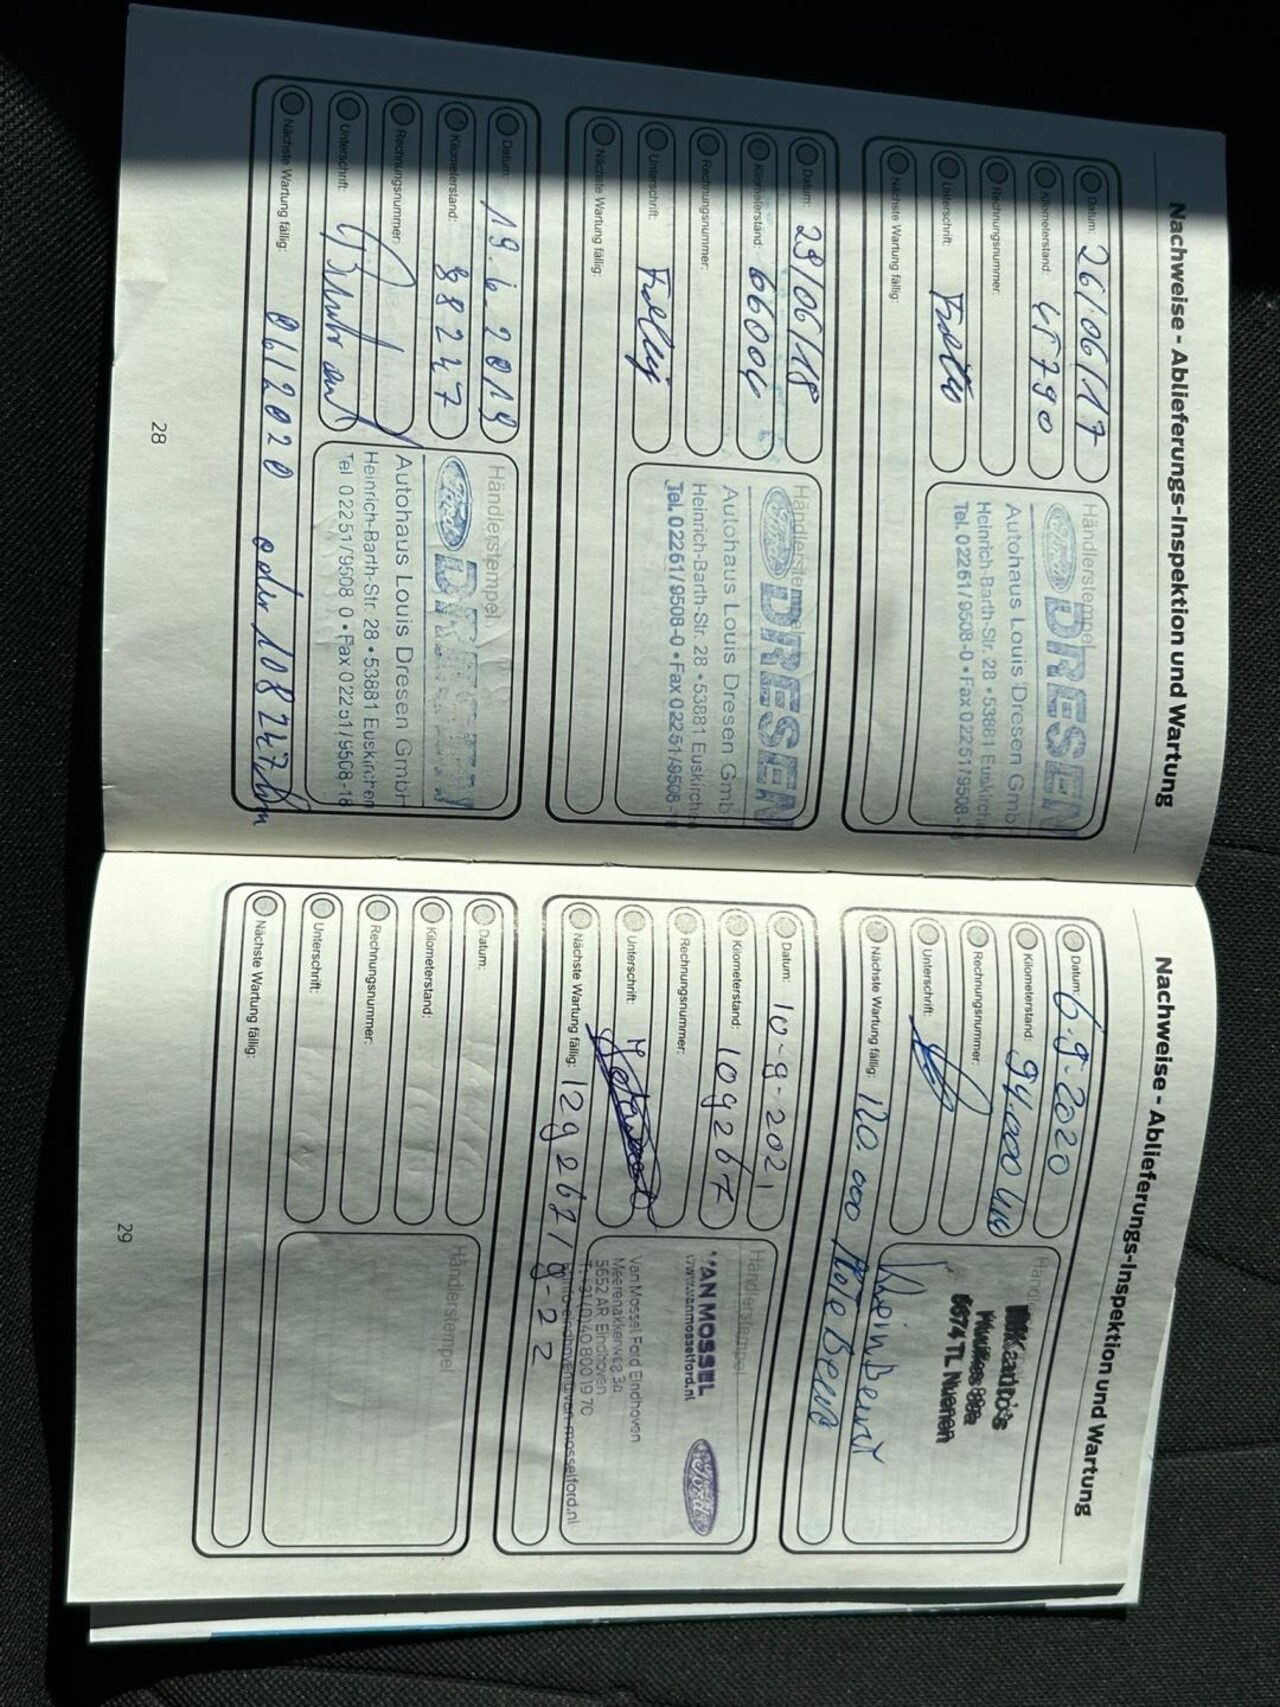 Nachweise - Ablieferungs-Inspektion und Wartung
Datum: 26/06/17
Kilometerstand: 45790
Rechnungsnummer:
Unterschrift:
Nächste Wartung fällig:
Händlerstempel
Ford DRESEN
Autohaus Louis Dresen Gmb
Heinrich-Barth-Str. 28 • 53881 Euskirche
Tel. 02251/9508-0 • Fax 02251/9508-
Datum: 29/06/18
Kilometerstand: 66004
Rechnungsnummer:
Unterschrift:
Nächste Wartung fällig:
Händlerstempel
Ford DRESEN
Autohaus Louis Dresen Gmb
Heinrich-Barth-Str. 28 • 53881 Euskirche
Tel. 02251/9508-0 • Fax 02251/9508-
Datum: 19.6.2019
Kilometerstand: 88247
Rechnungsnummer:
Unterschrift:
Nächste Wartung fällig: 06/2020 oder 108247km
Händlerstempel
Ford
Autohaus Louis Dresen GmbH
Heinrich-Barth-Str. 28 • 53881 Euskirchen
Tel 02251/9508 0 • Fax 02251/9508-18
28
Nachweise - Ablieferungs-Inspektion und Wartung
Datum: 6.9.2020
Kilometerstand: 94.000
Rechnungsnummer:
Unterschrift:
Nächste Wartung fällig: 120.000
5674 TL Nuenen
Klein Beurt
Datum: 10-9-2021
Kilometerstand: 109267
Rechnungsnummer:
Unterschrift:
Nächste Wartung fällig: 129267/9-22
Händlerstempel
VAN MOSSEL
www.vanmosselford.nl
Ford
Van Mossel Ford Eindhoven
Meerenakkerweg 3a
5652 AR Eindhoven
T: +31(0)40 8001970
Datum:
Kilometerstand:
Rechnungsnummer:
Unterschrift:
Nächste Wartung fällig:
Händlerstempel
29